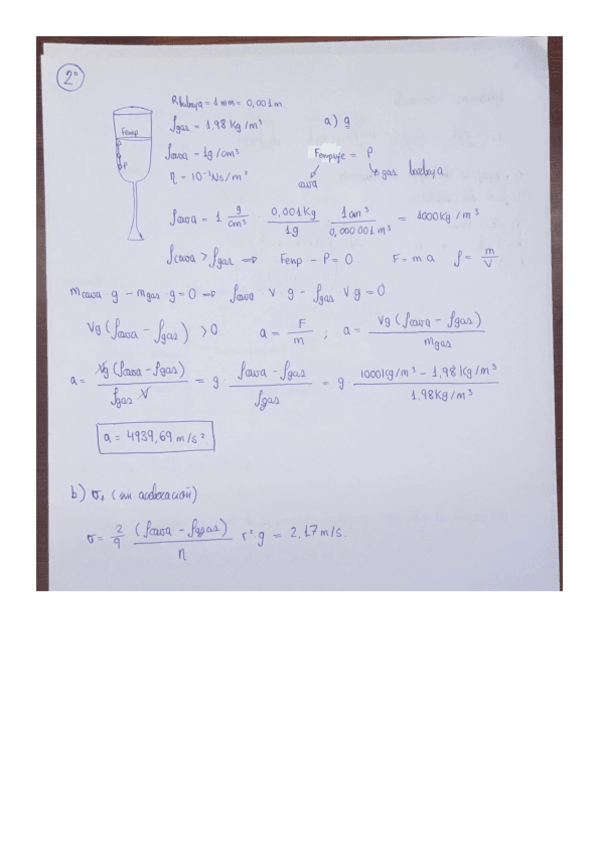 2º
Rburbuja = 1 mm = 0,001 m
ρgas = 1,98 Kg/m³
a) g
Femp
P
ρcava = 1g/cm³
Fempuje = P
cava
gas burbuja
η = 10⁻³ Ns/m²
ρcava = 1 g/cm³ · 0,001 Kg/1g · 1 cm³/0,000 001 m³ = 1000 Kg/m³
ρcava > ρgas ⇒ Femp - P = 0. F = m a ρ = m/V
mcava · g - mgas g = 0 ⇒ ρcava · V g - ρgas V g = 0
Vg (ρcava - ρgas) > 0 a = F/m ; a = Vg (ρcava - ρgas)/mgas
a = Vg (ρcava - ρgas)/ρgas V = g · ρcava - ρgas/ρgas = g 1000 Kg/m³ - 1,98 Kg/m³/1,98 Kg/m³
a = 4939,69 m/s²
b) (sin aceleración)
v = 2/9 (ρcava - ρgas)/η r² g = 2,17 m/s.